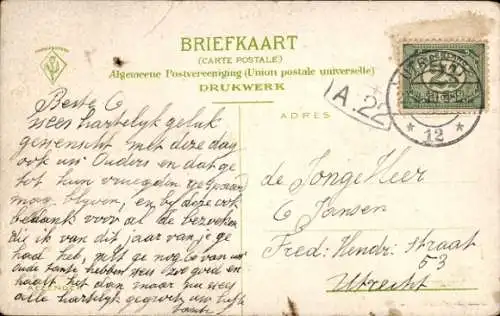 BRIEFKAART
(CARTE POSTALE)
Algemeene Postvereeniging (Union postale universelle)
DRUKWERK
A. 22
UTRECHT
12
ADRES
Beste C
wees hartelijk geluk
gewenscht met deze dag
ook uw Ouders en dat ge
tot hun vreugden gespaard
mag blijven, en bij deze ook
bedankt voor al de bezoeken
die ik van dit jaar van je ge
had heb,
oude tante hebben zoo goed en
het dan maar
alle hartelijk gegroet, uw liefh
tante
AFZENDER
de JongeHeer
C Jansen
Fred: Hendr: straat
53
Utrecht